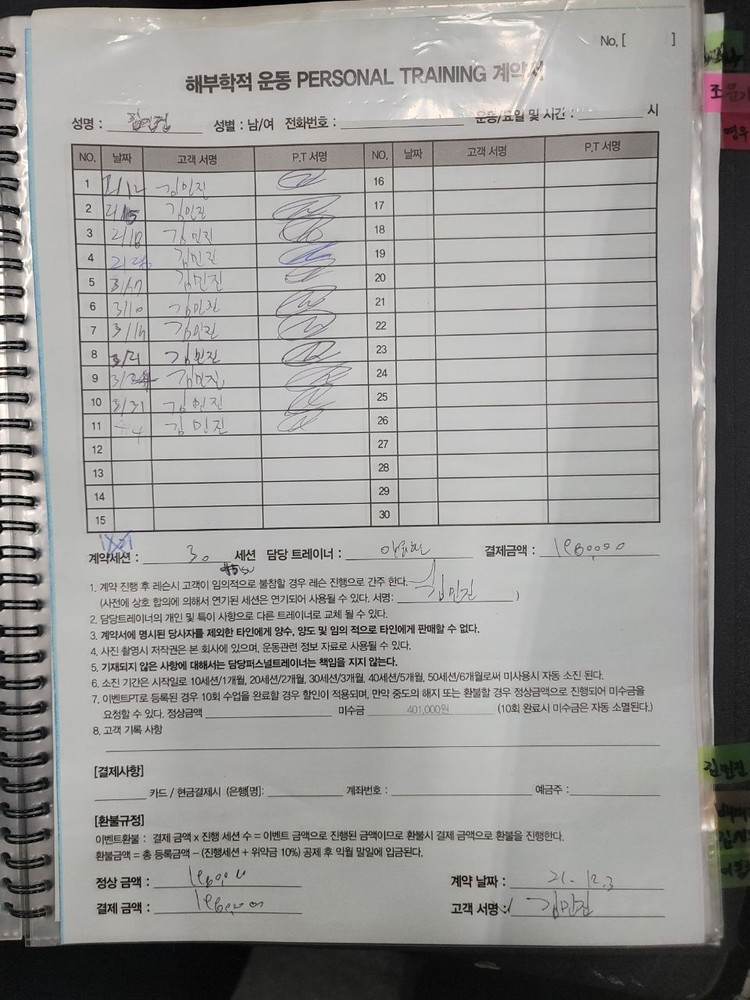 No, [ ]
해부학적 운동 PERSONAL TRAINING 계약서
성명 : 성별 : 남/여 전화번호 : 운동/요일 및 시간 : 시
NO. 날짜 고객 서명 P.T 서명 NO. 날짜 고객 서명 P.T 서명
1 2/12 김민진 16
2 2/15 김민진 17
3 2/18 김민진 18
4 김민진 19
5 김민진 20
6 3/10 김민진 21
7 3/14 김민진 22
8 3/21 김민진 23
9 김민진 24
10 3/31 김민진 25
11 김민진 26
12 27
13 28
14 29
15 30
계약세션 : 30 세션 담당 트레이너 : 결제금액 :
1. 계약 진행 후 레슨시 고객이 임의적으로 불참할 경우 레슨 진행으로 간주 한다.
(사전에 상호 합의에 의해서 연기된 세션은 연기되어 사용될 수 있다. 서명: 김민진 )
2. 담당트레이너의 개인 및 특이 사항으로 다른 트레이너로 교체 될 수 있다.
3. 계약서에 명시된 당사자를 제외한 타인에게 양수, 양도 및 임의 적으로 타인에게 판매할 수 없다.
4. 사진 촬영시 저작권은 본 회사에 있으며, 운동관련 정보 자료로 사용될 수 있다.
5. 기재되지 않은 사항에 대해서는 담당퍼스널트레이너는 책임을 지지 않는다.
6. 소진 기간은 시작일로 10세션/1개월, 20세션/2개월, 30세션/3개월, 40세션/5개월, 50세션/6개월로써 미사용시 자동 소진 된다.
7. 이벤트PT로 등록된 경우 10회 수업을 완료할 경우 할인이 적용되며, 만약 중도의 해지 또는 환불할 경우 정상금액으로 진행되어 미수금을
요청할 수 있다. 정상금액 미수금 401,000원 (10회 완료시 미수금은 자동 소멸된다.)
8. 고객 기록 사항
[결제사항]
카드 / 현금결제시 (은행명) : 계좌번호 : 예금주 :
[환불규정]
이벤트환불 : 결제 금액 x 진행 세션 수 = 이벤트 금액으로 진행된 금액이므로 환불시 결제 금액으로 환불을 진행한다.
환불금액 = 총 등록금액 - (진행세션 + 위약금 10%) 공제 후 익월 말일에 입금된다.
정상 금액 : 계약 날짜 : 21. 12. 3
결제 금액 : 고객 서명 : 김민진
김민진